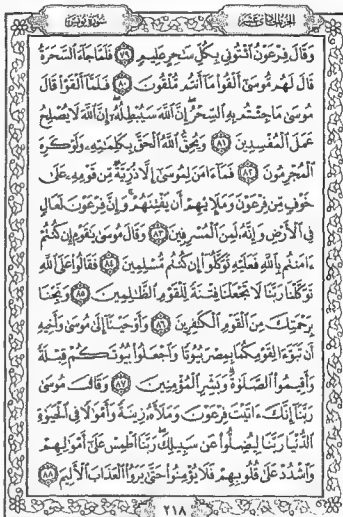 سورة يونس
الجزء الحادي عشر
وَقَالَ فِرْعَوْنُ ائْتُونِي بِكُلِّ سَاحِرٍ عَلِيمٍ ۝٧٩ فَلَمَّا جَاءَ السَّحَرَةُ
قَالَ لَهُم مُّوسَىٰ أَلْقُوا مَا أَنتُم مُّلْقُونَ ۝٨٠ فَلَمَّا أَلْقَوْا قَالَ
مُوسَىٰ مَا جِئْتُم بِهِ السِّحْرُ إِنَّ اللَّهَ سَيُبْطِلُهُ إِنَّ اللَّهَ لَا يُصْلِحُ
عَمَلَ الْمُفْسِدِينَ ۝٨١ وَيُحِقُّ اللَّهُ الْحَقَّ بِكَلِمَاتِهِ وَلَوْ كَرِهَ
الْمُجْرِمُونَ ۝٨٢ فَمَا آمَنَ لِمُوسَىٰ إِلَّا ذُرِّيَّةٌ مِّن قَوْمِهِ عَلَىٰ
خَوْفٍ مِّن فِرْعَوْنَ وَمَلَإِيهِمْ أَن يَفْتِنَهُمْ وَإِنَّ فِرْعَوْنَ لَعَالٍ
فِي الْأَرْضِ وَإِنَّهُ لَمِنَ الْمُسْرِفِينَ ۝٨٣ وَقَالَ مُوسَىٰ يَاقَوْمِ إِن كُنتُمْ
آمَنتُم بِاللَّهِ فَعَلَيْهِ تَوَكَّلُوا إِن كُنتُم مُّسْلِمِينَ ۝٨٤ فَقَالُوا عَلَى اللَّهِ
تَوَكَّلْنَا رَبَّنَا لَا تَجْعَلْنَا فِتْنَةً لِّلْقَوْمِ الظَّالِمِينَ ۝٨٥ وَنَجِّنَا
بِرَحْمَتِكَ مِنَ الْقَوْمِ الْكَافِرِينَ ۝٨٦ وَأَوْحَيْنَا إِلَىٰ مُوسَىٰ وَأَخِيهِ
أَن تَبَوَّءَا لِقَوْمِكُمَا بِمِصْرَ بُيُوتًا وَاجْعَلُوا بُيُوتَكُمْ قِبْلَةً
وَأَقِيمُوا الصَّلَاةَ وَبَشِّرِ الْمُؤْمِنِينَ ۝٨٧ وَقَالَ مُوسَىٰ
رَبَّنَا إِنَّكَ آتَيْتَ فِرْعَوْنَ وَمَلَأَهُ زِينَةً وَأَمْوَالًا فِي الْحَيَاةِ
الدُّنْيَا رَبَّنَا لِيُضِلُّوا عَن سَبِيلِكَ رَبَّنَا اطْمِسْ عَلَىٰ أَمْوَالِهِمْ
وَاشْدُدْ عَلَىٰ قُلُوبِهِمْ فَلَا يُؤْمِنُوا حَتَّىٰ يَرَوُا الْعَذَابَ الْأَلِيمَ ۝٨٨
٢١٨